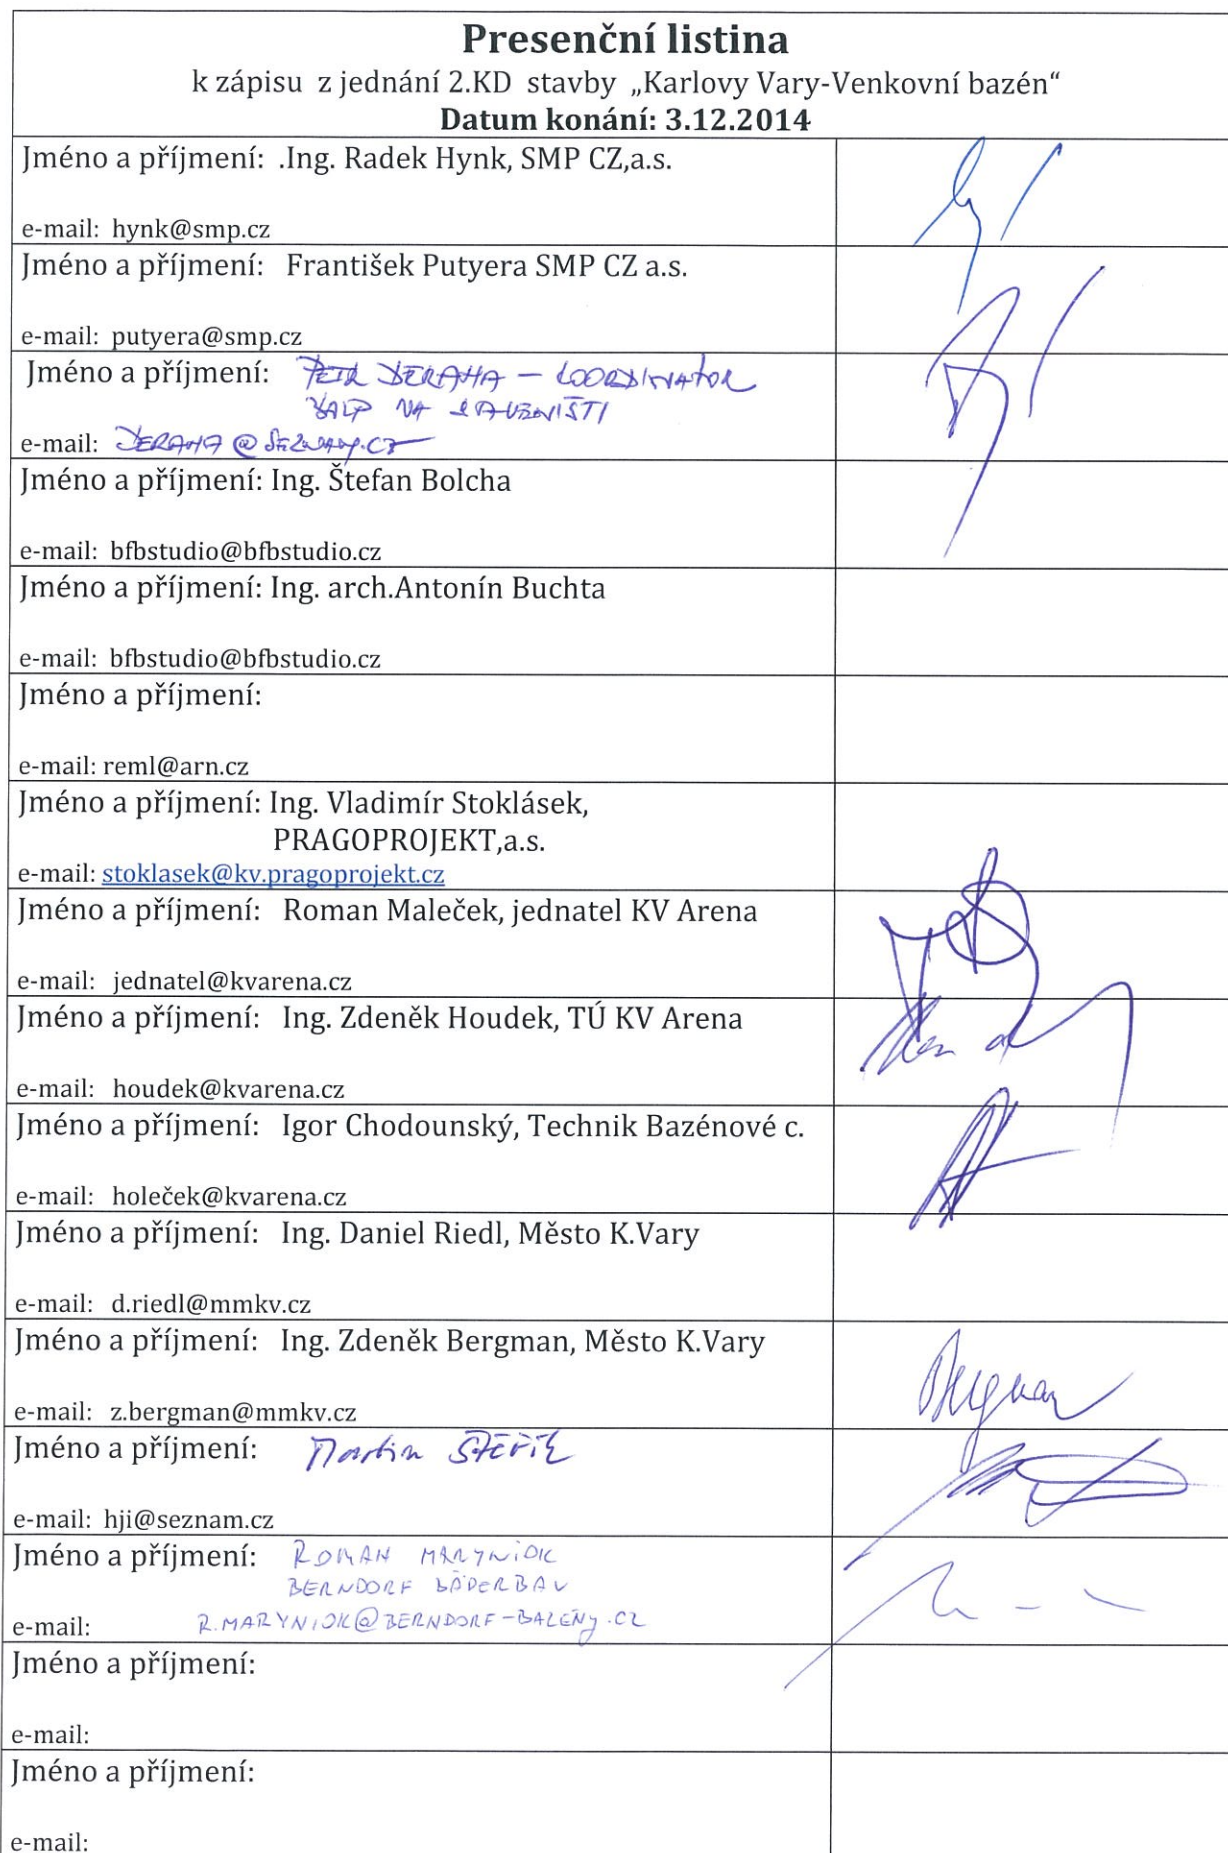 Presenční listina
k zápisu z jednání 2.KD stavby „Karlovy Vary-Venkovní bazén“
Datum konání: 3.12.2014
Jméno a příjmení: .Ing. Radek Hynk, SMP CZ,a.s.
e-mail: hynk@smp.cz
Jméno a příjmení: František Putyera SMP CZ a.s.
e-mail: putyera@smp.cz
Jméno a příjmení: PETR JERAHA – KOORDINATOR
NA STAVENIŠTI
e-mail: JERAHA@SEZNAM.CZ
Jméno a příjmení: Ing. Štefan Bolcha
e-mail: bfbstudio@bfbstudio.cz
Jméno a příjmení: Ing. arch.Antonín Buchta
e-mail: bfbstudio@bfbstudio.cz
Jméno a příjmení:
e-mail: reml@arn.cz
Jméno a příjmení: Ing. Vladimír Stoklásek,
PRAGOPROJEKT,a.s.
e-mail: stoklasek@kv.pragoprojekt.cz
Jméno a příjmení: Roman Maleček, jednatel KV Arena
e-mail: jednatel@kvarena.cz
Jméno a příjmení: Ing. Zdeněk Houdek, TÚ KV Arena
e-mail: houdek@kvarena.cz
Jméno a příjmení: Igor Chodounský, Technik Bazénové c.
e-mail: holeček@kvarena.cz
Jméno a příjmení: Ing. Daniel Riedl, Město K.Vary
e-mail: d.riedl@mmkv.cz
Jméno a příjmení: Ing. Zdeněk Bergman, Město K.Vary
Bergman
e-mail: z.bergman@mmkv.cz
Jméno a příjmení: Martin
e-mail: hji@seznam.cz
Jméno a příjmení: ROMAN MARYNIOK
BERNDORF BÄDERBAU
e-mail: R.MARYNIOK@BERNDORF-BAZENY.CZ
Jméno a příjmení:
e-mail:
Jméno a příjmení:
e-mail: